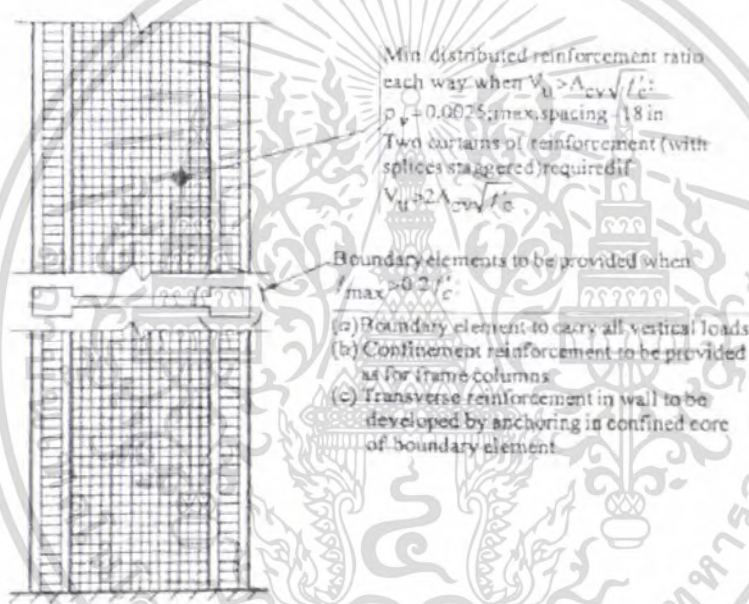 Min distributed reinforcement ratio
each way when Vu>Acv√f'c:
ρv=0.0025; max. spacing -18 in
Two curtains of reinforcement (with
splices staggered) required if
Vu>2Acv√f'c
Boundary elements to be provided when
fmax>0.2f'c:
(a) Boundary element to carry all vertical loads
(b) Confinement reinforcement to be provided
as for frame columns
(c) Transverse reinforcement in wall to be
developed by anchoring in confined core
of boundary element